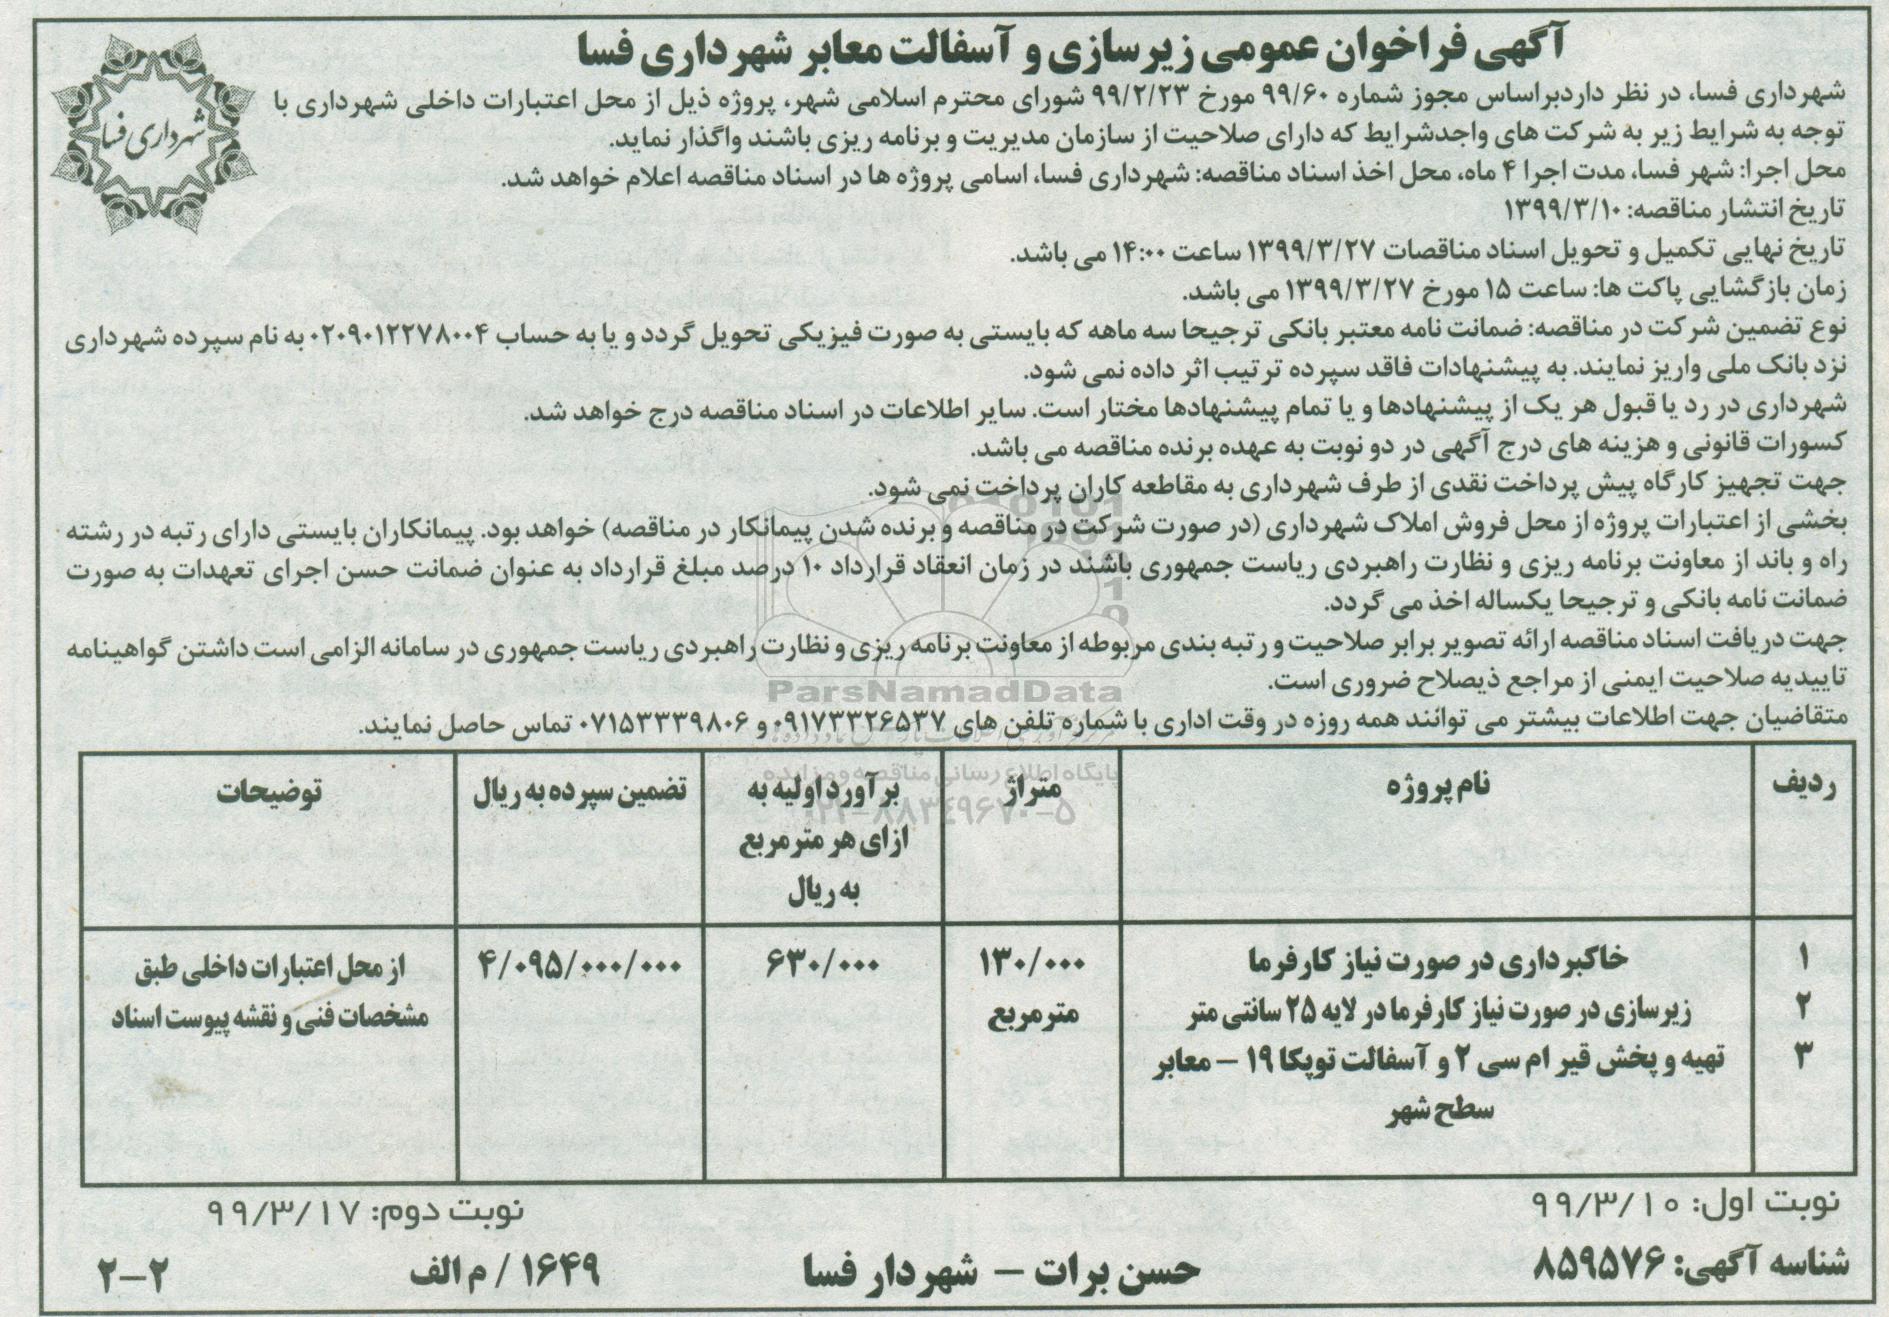 آگهی فراخوان عمومی زیرسازی و آسفالت معابر شهرداری فسا
شهرداری فسا
شهرداری فسا، در نظر داردبراساس مجوز شماره ۹۹/۶۰ مورخ ۹۹/۲/۲۳ شورای محترم اسلامی شهر، پروژه ذیل از محل اعتبارات داخلی شهرداری با
توجه به شرایط زیر به شرکت های واجدشرایط که دارای صلاحیت از سازمان مدیریت و برنامه ریزی باشند واگذار نماید.
محل اجرا: شهر فسا، مدت اجرا ۴ ماه، محل اخذ اسناد مناقصه: شهرداری فسا، اسامی پروژه ها در اسناد مناقصه اعلام خواهد شد.
تاریخ انتشار مناقصه: ۱۳۹۹/۳/۱۰
تاریخ نهایی تکمیل و تحویل اسناد مناقصات ۱۳۹۹/۳/۲۷ ساعت ۱۴:۰۰ می باشد.
زمان بازگشایی پاکت ها: ساعت ۱۵ مورخ ۱۳۹۹/۳/۲۷ می باشد.
نوع تضمین شرکت در مناقصه: ضمانت نامه معتبر بانکی ترجیحا سه ماهه که بایستی به صورت فیزیکی تحویل گردد و یا به حساب ۰۲۰۹۰۱۲۲۷۸۰۰۴ به نام سپرده شهرداری
نزد بانک ملی واریز نمایند. به پیشنهادات فاقد سپرده ترتیب اثر داده نمی شود.
شهرداری در رد یا قبول هر یک از پیشنهادها و یا تمام پیشنهادها مختار است. سایر اطلاعات در اسناد مناقصه درج خواهد شد.
کسورات قانونی و هزینه های درج آگهی در دو نوبت به عهده برنده مناقصه می باشد.
جهت تجهیز کارگاه پیش پرداخت نقدی از طرف شهرداری به مقاطعه کاران پرداخت نمی شود.
بخشی از اعتبارات پروژه از محل فروش املاک شهرداری (در صورت شرکت در مناقصه و برنده شدن پیمانکار در مناقصه) خواهد بود. پیمانکاران بایستی دارای رتبه در رشته
راه و باند از معاونت برنامه ریزی و نظارت راهبردی ریاست جمهوری باشند در زمان انعقاد قرارداد ۱۰ درصد مبلغ قرارداد به عنوان ضمانت حسن اجرای تعهدات به صورت
ضمانت نامه بانکی و ترجیحا یکساله اخذ می گردد.
جهت دریافت اسناد مناقصه ارائه تصویر برابر صلاحیت و رتبه بندی مربوطه از معاونت برنامه ریزی و نظارت راهبردی ریاست جمهوری در سامانه الزامی است داشتن گواهینامه
تاییدیه صلاحیت ایمنی از مراجع ذیصلاح ضروری است.
ParsNamadData
متقاضیان جهت اطلاعات بیشتر می توانند همه روزه در وقت اداری با شماره تلفن های ۰۹۱۷۳۳۲۶۵۳۷ و ۰۷۱۵۳۳۳۹۸۰۶ تماس حاصل نمایند.
پایگاه اطلاع رسانی مناقصه و مزایده
۰۲۱-۸۸۳۴۹۶۷۰-۵
ردیف نام پروژه متراژ برآورد اولیه به تضمین سپرده به ریال توضیحات
ازای هر مترمربع
به ریال
۱ خاکبرداری در صورت نیاز کارفرما ۱۳۰/۰۰۰ ۶۳۰/۰۰۰ ۴/۰۹۵/۰۰۰/۰۰۰ از محل اعتبارات داخلی طبق
۲ زیرسازی در صورت نیاز کارفرما در لایه ۲۵ سانتی متر مترمربع مشخصات فنی و نقشه پیوست اسناد
۳ تهیه و پخش قیر ام سی ۲ و آسفالت توپکا ۱۹ – معابر
سطح شهر
نوبت اول: ۹۹/۳/۱۰ نوبت دوم: ۹۹/۳/۱۷
شناسه آگهی: ۸۵۹۵۷۶ حسن برات – شهردار فسا ۱۶۴۹ / م الف ۲–۲